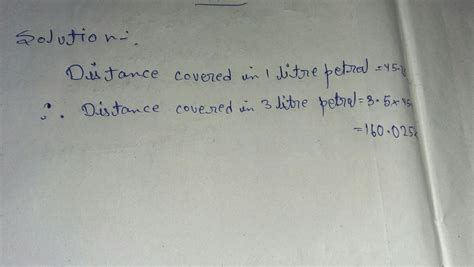 Solution:-
Distance covered in 1 litre petrol = 45.
∴ Distance covered in 3 litre petrol = 3.5 × 45
= 160.025